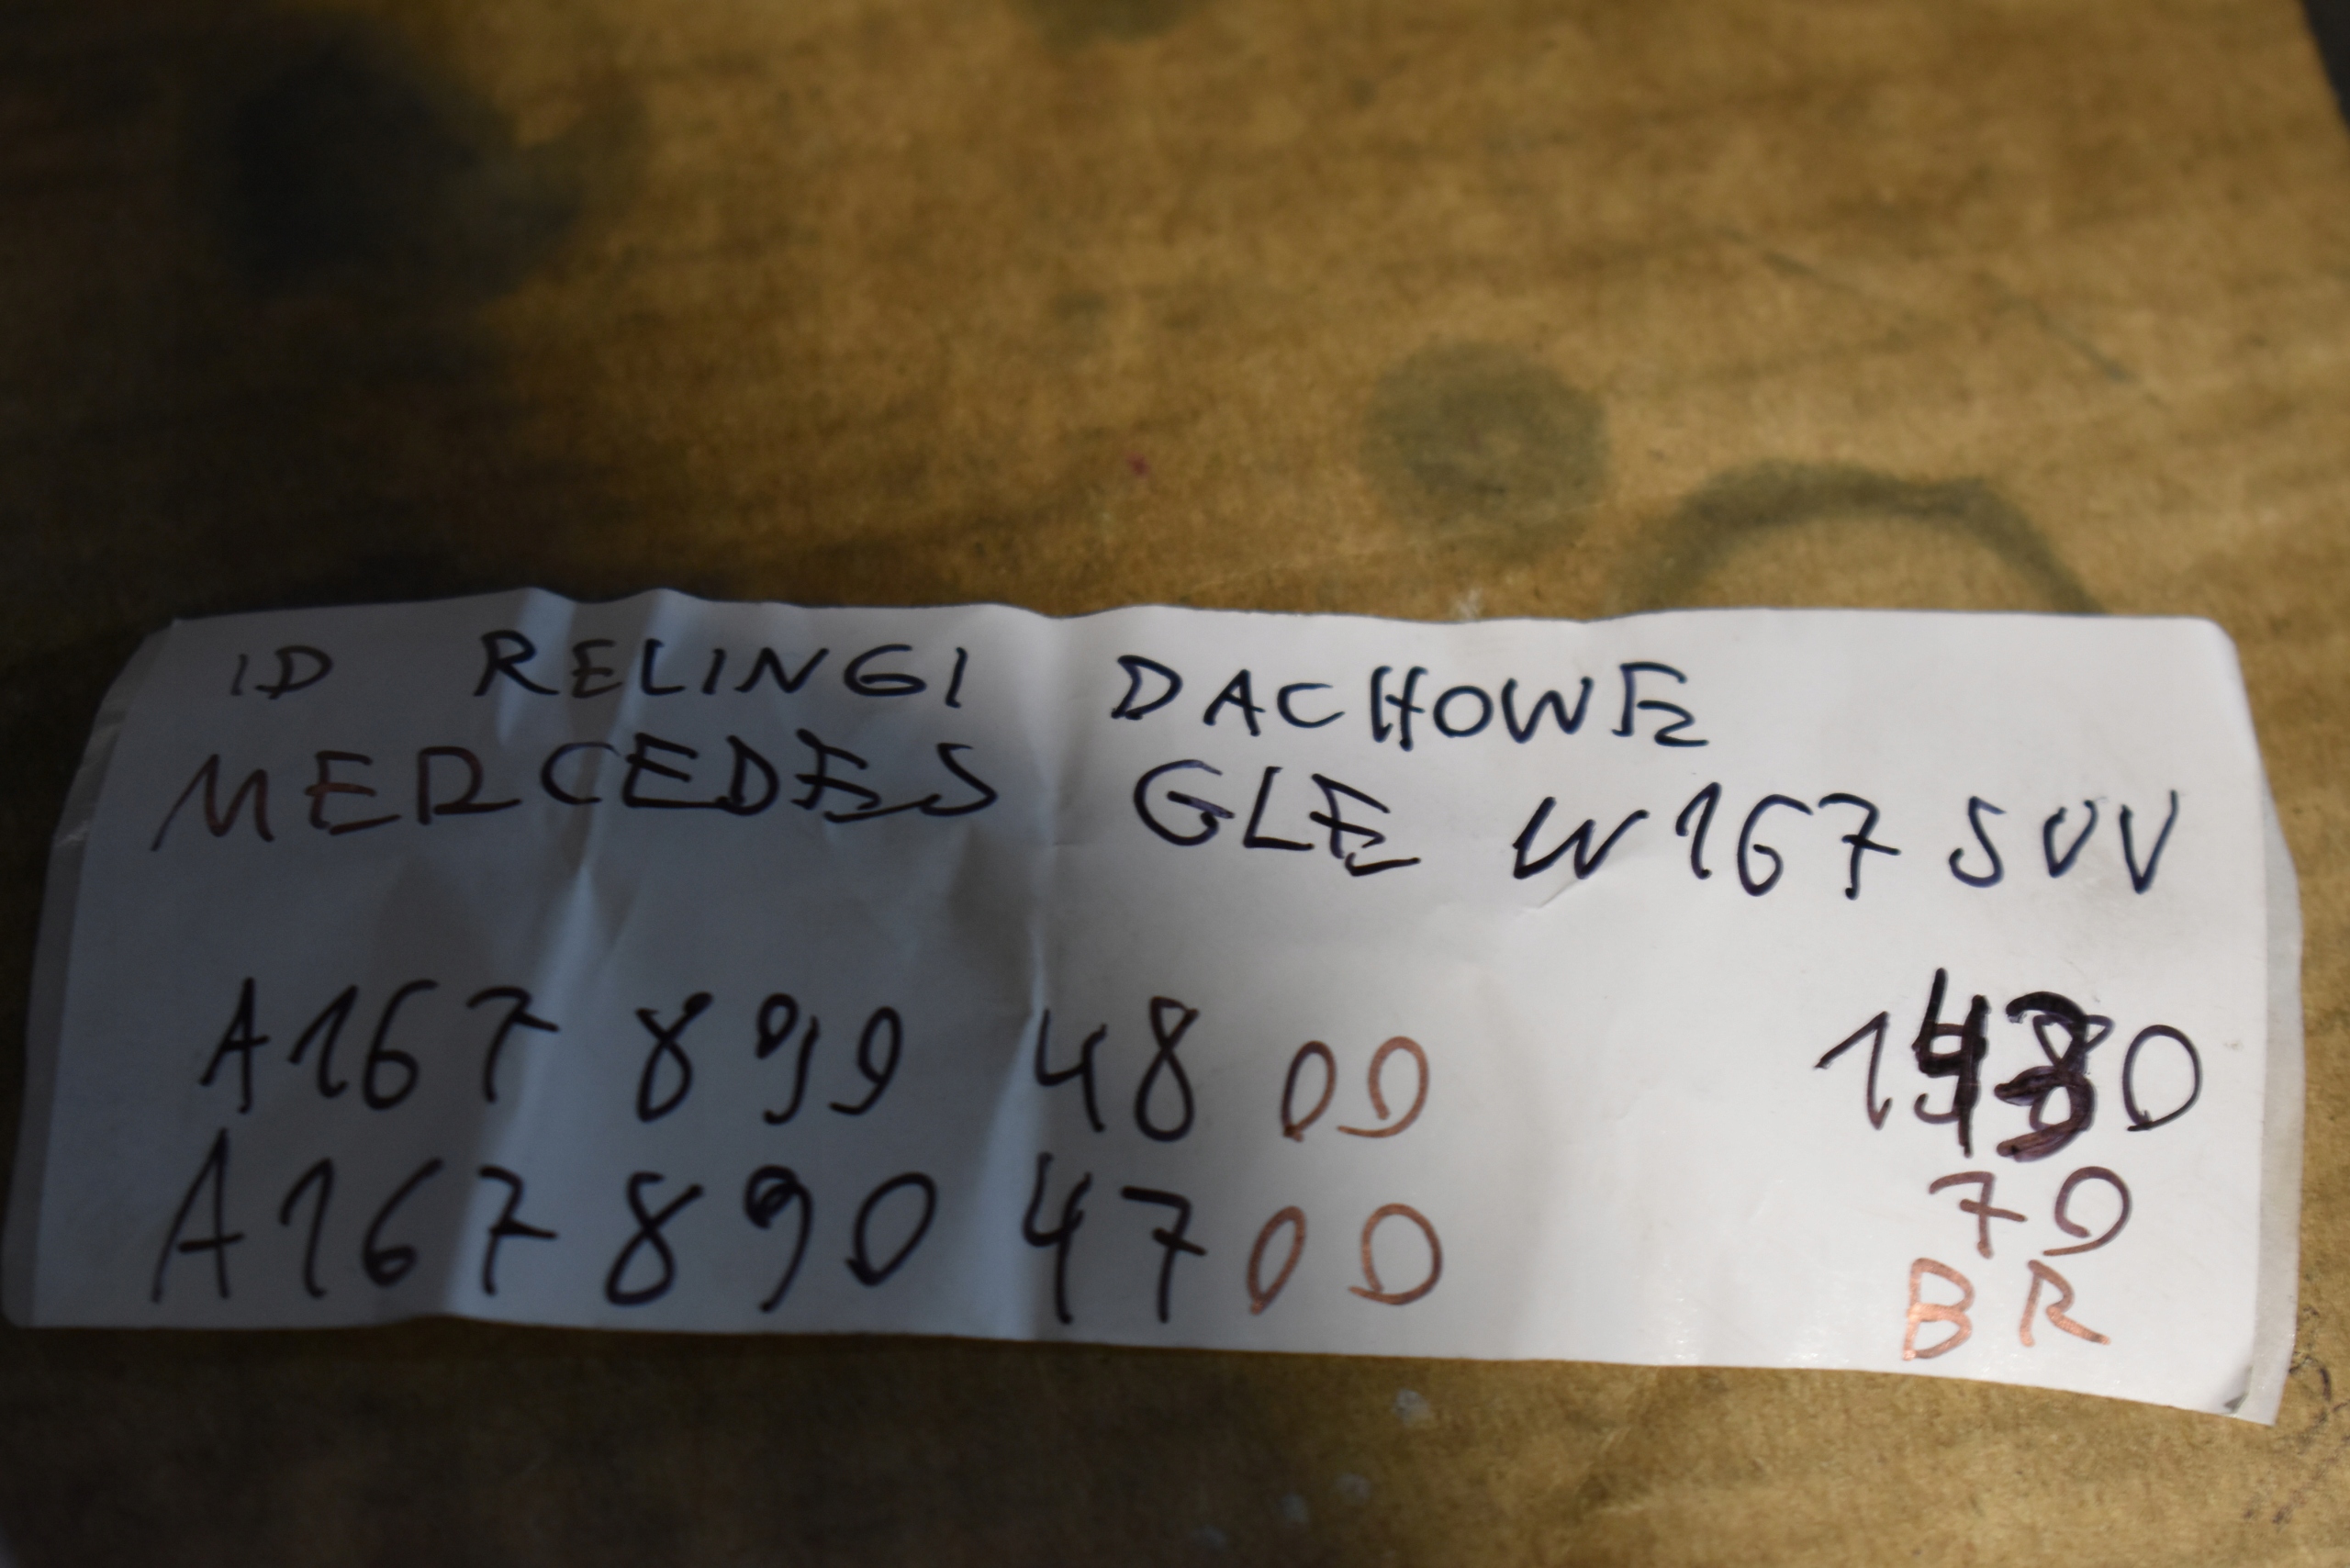 ID RELINGI DACHOWE
MERCEDES GLE W167 SUV
A167 899 48 00
A167 890 47 00
70
BR